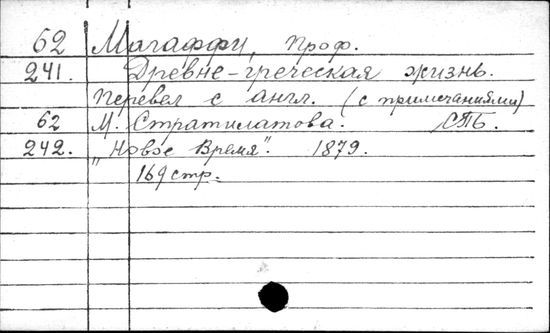 62 Магаффи, Проф.
241. Древне-греческая жизнь.
Перевел с англ. (с примечаниями)
62 М. Стратилатова. СПБ.
242. „Новое Время“. 1879.
169 стр.